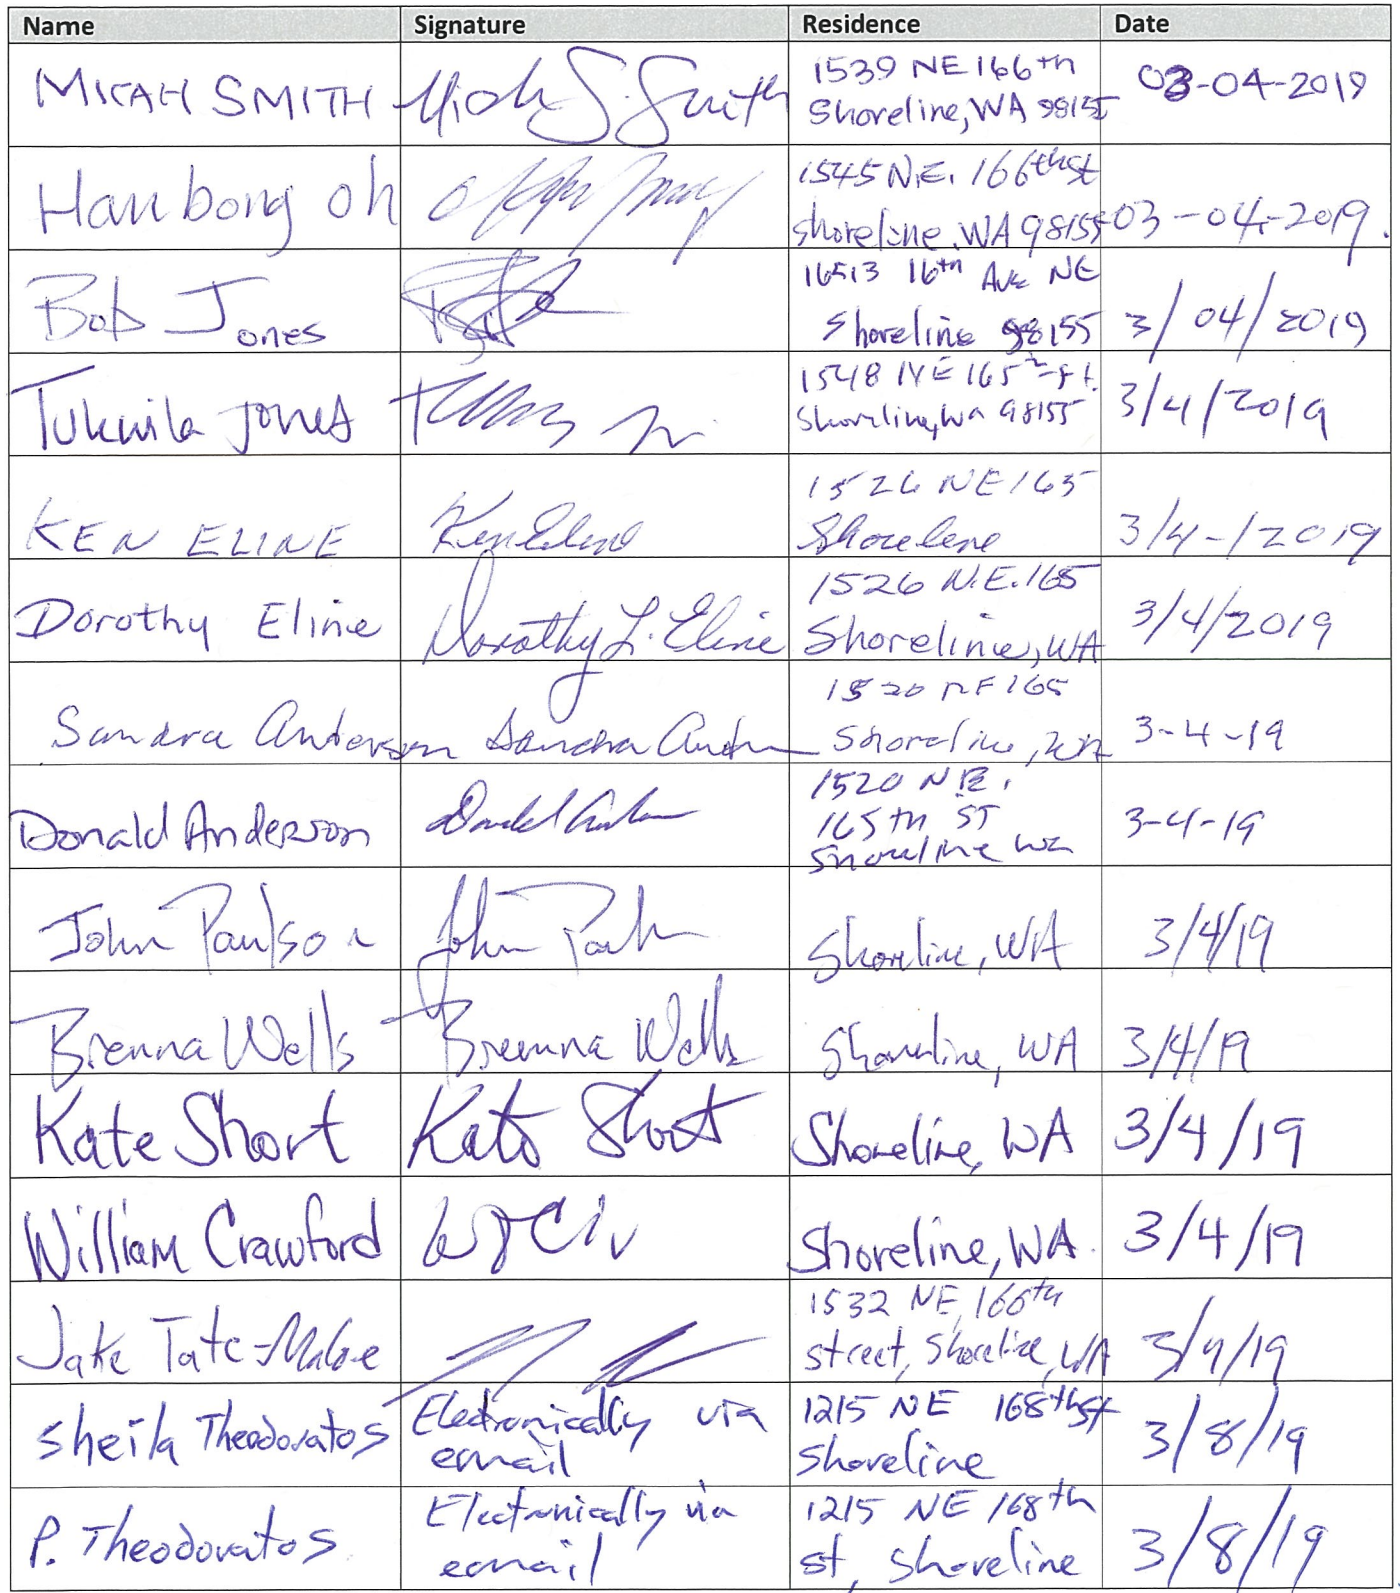 Name Signature Residence Date
MICAH SMITH Micah S. Smith 1539 NE 166th
Shoreline, WA 98155 03-04-2019
Hanbong Oh 1545 N.E. 166th st
shoreline, WA 98155 03-04-2019.
Bob Jones 16513 16th Ave NE
Shoreline 98155 3/04/2019
Tukwila Jones 1548 NE 165th St.
Shoreline, Wa 98155 3/4/2019
KEN ELINE Ken Eline 1526 NE 165
Shoreline 3/4-/2019
Dorothy Eline Dorothy L. Eline 1526 N.E. 165
Shoreline, WA 3/4/2019
Sandra Anderson Sandra 1520 NE 165
Shoreline, WA 3-4-19
Donald Anderson Donald 1520 N.E.
165th ST
Shoreline wa 3-4-19
John Paulson John Shoreline, WA 3/4/19
Brenna Wells Brenna Wells Shoreline, WA 3/4/19
Kate Short Kate Short Shoreline, WA 3/4/19
William Crawford Shoreline, WA. 3/4/19
Jake Tate-Malone 1532 NE 166th
street, Shoreline, WA 3/4/19
Sheila Theodoratos Electronically via
email 1215 NE 168th st
Shoreline 3/8/19
P. Theodoratos Electronically via
email 1215 NE 168th
st, Shoreline 3/8/19